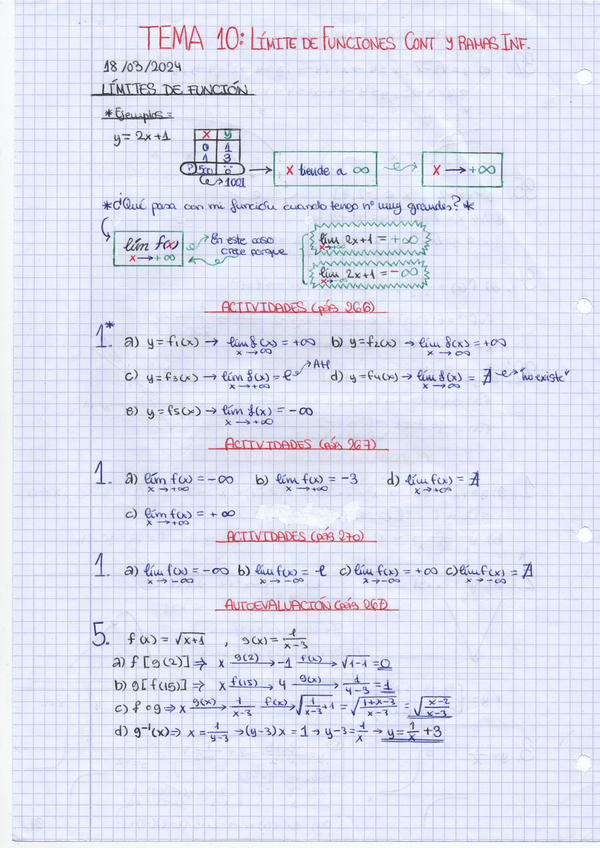 TEMA 10: LÍMITE DE FUNCIONES CONT Y RAMAS INF.
18/03/2024
LÍMITES DE FUNCIÓN
* Ejemplos =
y = 2x+1
x y
0 1
1 3
500 ∞
→ 1001
x tiende a ∞
x → +∞
* ¿Qué pasa con mi función cuando tengo nº muy grandes? *
lím f(x)
x → +∞
En este caso
crece porque
lím 2x+1 = +∞
x→+∞
lím 2x+1 = -∞
x→-∞
ACTIVIDADES (pág 266)
1.* a) y = f₁(x) → lím f(x) = +∞ b) y = f₂(x) → lím f(x) = +∞
x → ∞ x → ∞
c) y = f₃(x) → lím f(x) = l → AH d) y = f₄(x) → lím f(x) = ∄ → "no existe"
x → +∞ x → ∞
e) y = f₅(x) → lím f(x) = -∞
x → +∞
ACTIVIDADES (pág 267)
1. a) lím f(x) = -∞ b) lím f(x) = -3 d) lím f(x) = ∄
x → +∞ x → +∞ x → +∞
c) lím f(x) = +∞
x → +∞
ACTIVIDADES (pág 270)
1. a) lím f(x) = -∞ b) lím f(x) = -l c) lím f(x) = +∞ c) lím f(x) = ∄
x → -∞ x → -∞ x → -∞ x → -∞
AUTOEVALUACIÓN (pág 267)
5. f(x) = √x+1 , g(x) = 1/x-3
a) f[g(2)] ⇒ x g(2)→ -1 f(x)→ √1-1 = 0
b) g[f(15)] ⇒ x f(15)→ 4 g(x)→ 1/4-3 = 1
c) f o g ⇒ x g(x)→ 1/x-3 f(x)→ √1/x-3 + 1 = √1+x-3/x-3 = √x-2/x-3
d) g⁻¹(x) ⇒ x = 1/y-3 → (y-3)x = 1 → y-3 = 1/x → y = 1/x + 3